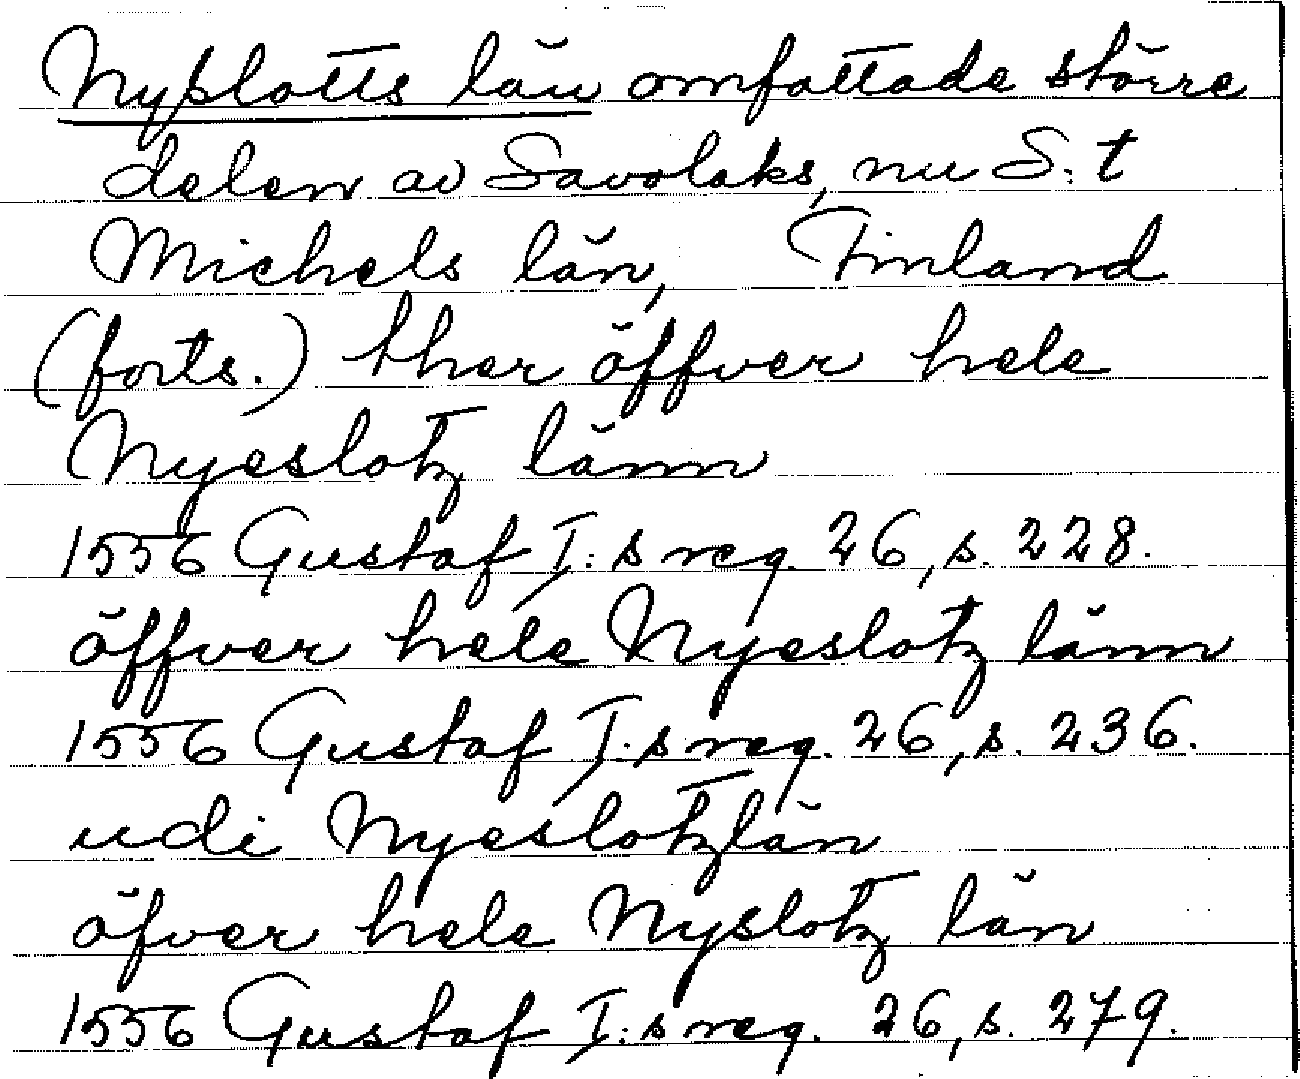 Nyslotts län omfattade större
delen av Savolaks, nu S:t
Michels län, Finland
(forts.) ther öffver hele
Nyeslotz länn
1556 Gustaf I:s reg. 26, s. 228.
öffver hele Nyeslotz länn
1556 Gustaf I:s reg. 26, s. 236.
udi Nyeslotzlän
öfver hele Nyslotz län
1556 Gustaf I:s reg. 26, s. 279.